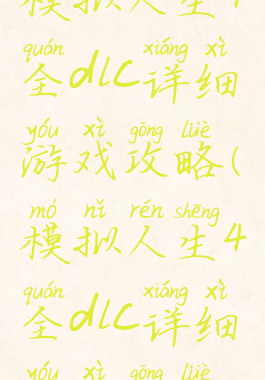 模拟人生4
quán xiáng xì
全dlc详细
yóu xì gōng lüè
游戏攻略(
mó nǐ rén shēng
模拟人生4
quán xiáng xì
全dlc详细
yóu xì gōng lüè